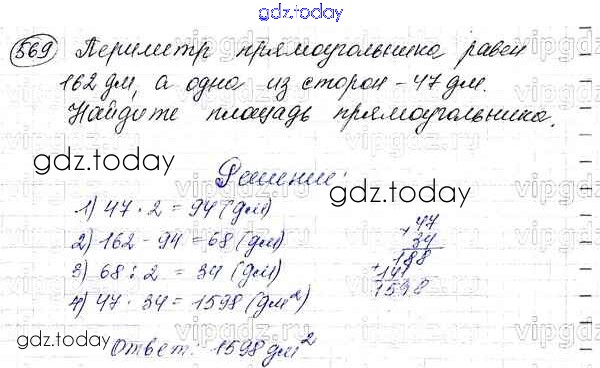 gdz.today
569 Периметр прямоугольника равен
162 дм, а одна из сторон - 47 дм.
Найдите площадь прямоугольника.
gdz.today
Решение:
gdz.today
1) 47 · 2 = 94 (дм)
2) 162 - 94 = 68 (дм)
3) 68 : 2 = 34 (дм)
4) 47 · 34 = 1598 (дм²)
47
34
188
+ 141
1598
gdz.today
gdz.today
Ответ: 1598 дм²